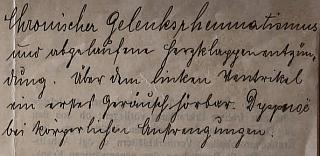 Chronischer Gelenksrheumatismus
und abgelaufene Herzklappenentzün-
dung. Über dem linken Ventrikel
ein erstes Geräusch hörbar. Dyspnoë
bei körperlichen Anstrengungen.